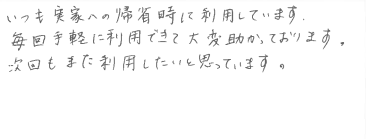 いつも実家への帰省時に利用しています.
毎回手軽に利用できて大変助かっております。
次回もまた利用したいと思っています。